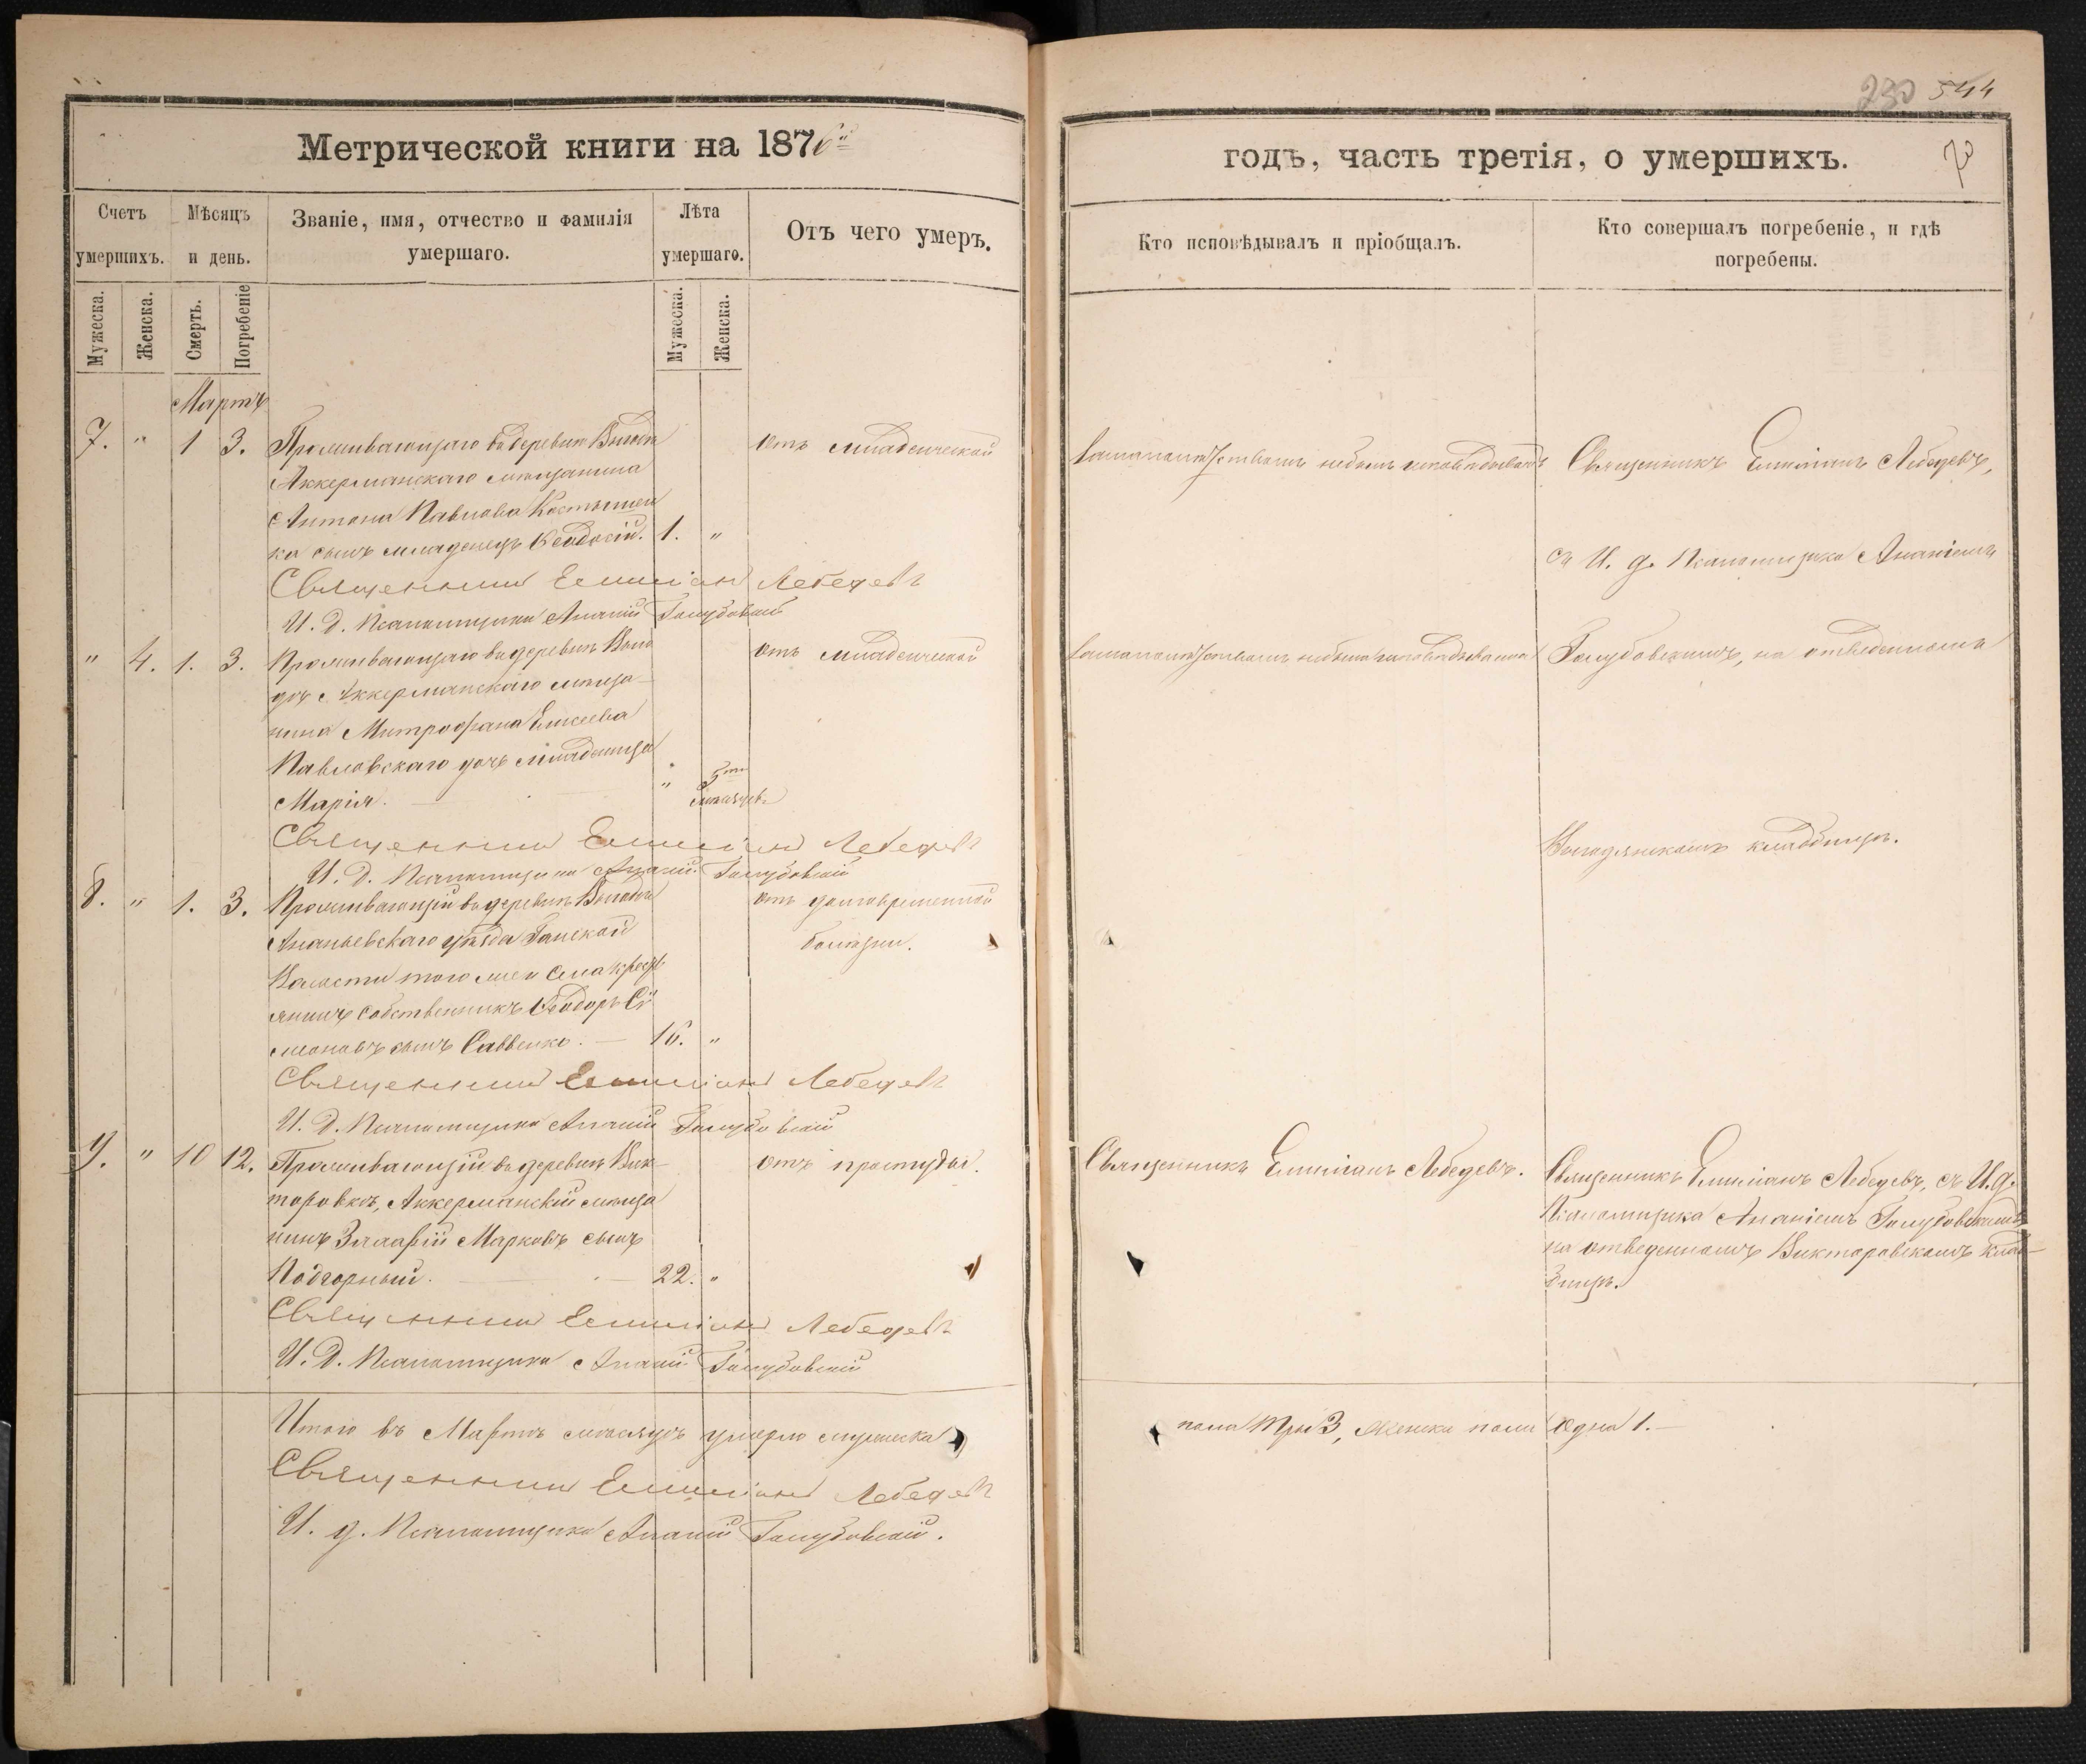 230 544
Метрической книги на 1876й
годъ, часть третія, о умершихъ.
Счетъ умершихъ.
Мѣсяцъ и день.
Званіе, имя, отчество и фамилія умершаго.
Лѣта умершаго.
Отъ чего умеръ.
Кто исповѣдывалъ и пріобщалъ.
Кто совершалъ погребеніе, и гдѣ погребены.
Мужеска.
Женска.
Смерть.
Погребеніе
Мужеска.
Женска.
Мартъ
7. " 1 3. Проживающаго въ деревнѣ Выгодѣ
Аккерманскаго мѣщанина
Антона Павлова
ка сынъ младенецъ Ѳеодосій. 1. "
отъ младенческой
Священникъ Емиліанъ Лебедевъ,
съ И. д. Псаломщика Ананіемъ
Священникъ Емиліанъ Лебедевъ
И. д. Псаломщика Ананій Голубовскій
" 4. 1. 3. Проживающаго въ деревнѣ Выго
дѣ Аккерманскаго мѣща-
нина Митрофана Елисеева
Павловскаго дочь младеница
Марія. " 5ти мѣсяцевъ
отъ младенческой
Голубовскимъ, на отведенномъ
Выгодянскомъ кладбищѣ.
Священникъ Емиліанъ Лебедевъ
И. д. Псаломщика Ананій Голубовскій
8. " 1. 3. Проживающій въ деревнѣ Выгодѣ
Ананьевскаго уѣзда
Волости того же села крестъ
янинъ собственникъ Ѳеодоръ Си
меоновъ сынъ Саввенко. — 16. "
отъ долговременной
болѣзни.
Священникъ Емиліанъ Лебедевъ
И. д. Псаломщика Ананій Голубовскій
9. " 10 12. Проживающій въ деревнѣ Вик-
торовкѣ, Аккерманскій мѣща
нинъ Марковъ сынъ
Подгорный. — 22. "
отъ простуды.
Священникъ Емиліанъ Лебедевъ.
Священникъ Емиліанъ Лебедевъ, съ И. д.
Псаломщика Ананіемъ Голубовскимъ,
на отведенномъ Викторовскомъ клад-
бищѣ.
Священникъ Емиліанъ Лебедевъ
И. д. Псаломщика Ананій Голубовскій
Итого въ Мартѣ мѣсяцѣ умерло мужеска
пола три 3, женска пола одна 1. —
Священникъ Емиліанъ Лебедевъ
И. д. Псаломщика Ананій Голубовскій.